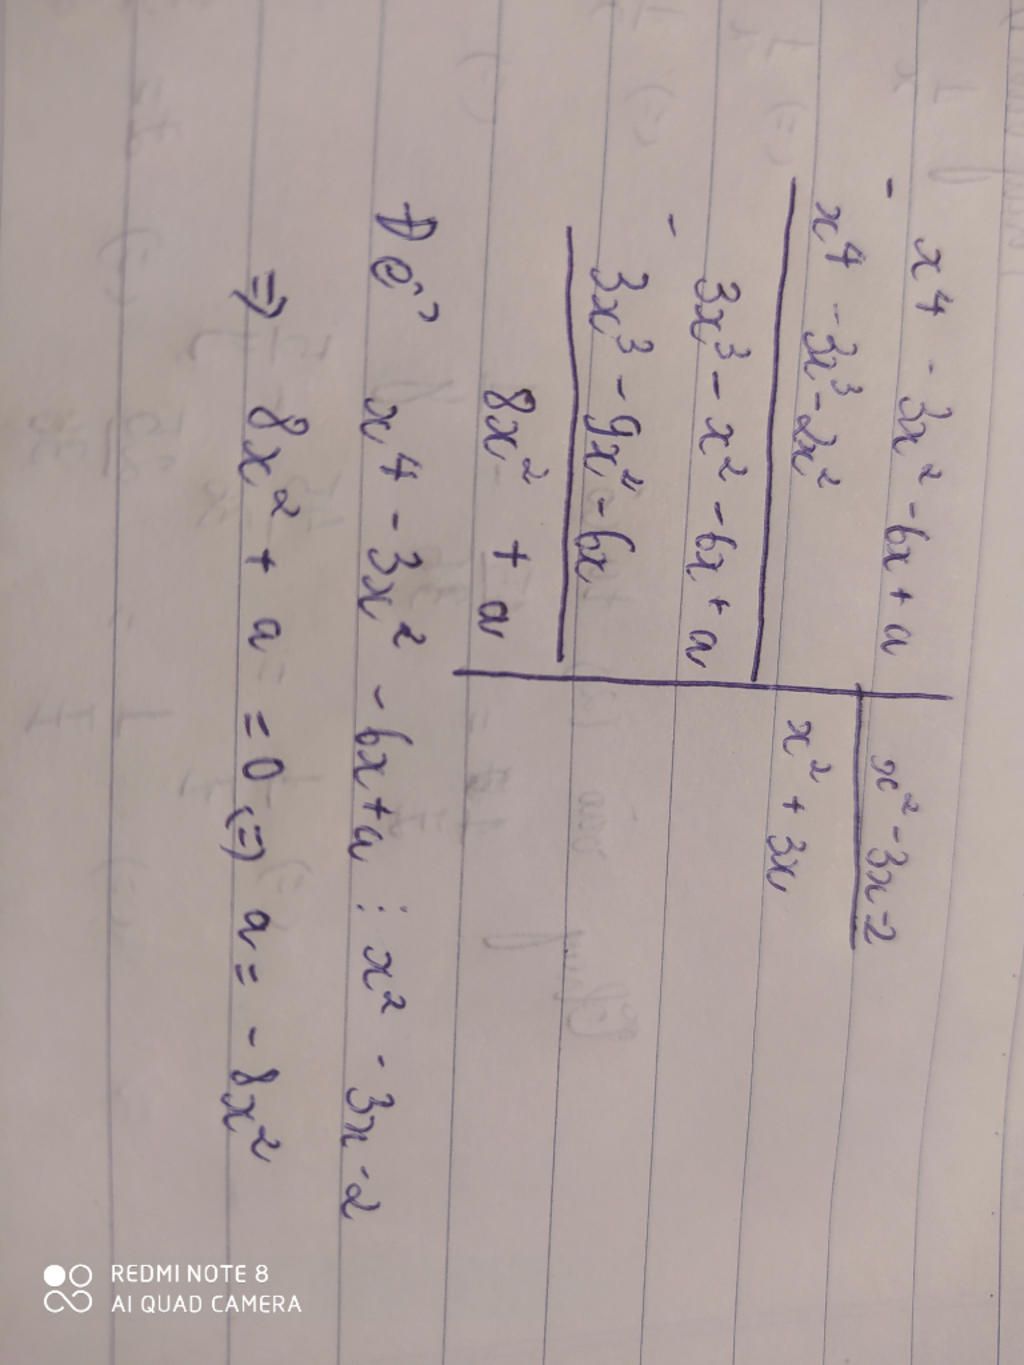 x⁴ - 3x² - 6x + a
x² - 3x - 2
-
x⁴ - 3x³ - 2x²
x² + 3x
3x³ - x² - 6x + a
-
3x³ - 9x² - 6x
8x² + a
Để x⁴ - 3x² - 6x + a ⋮ x² - 3x - 2
=> 8x² + a = 0 (=) a = - 8x²
REDMI NOTE 8
AI QUAD CAMERA